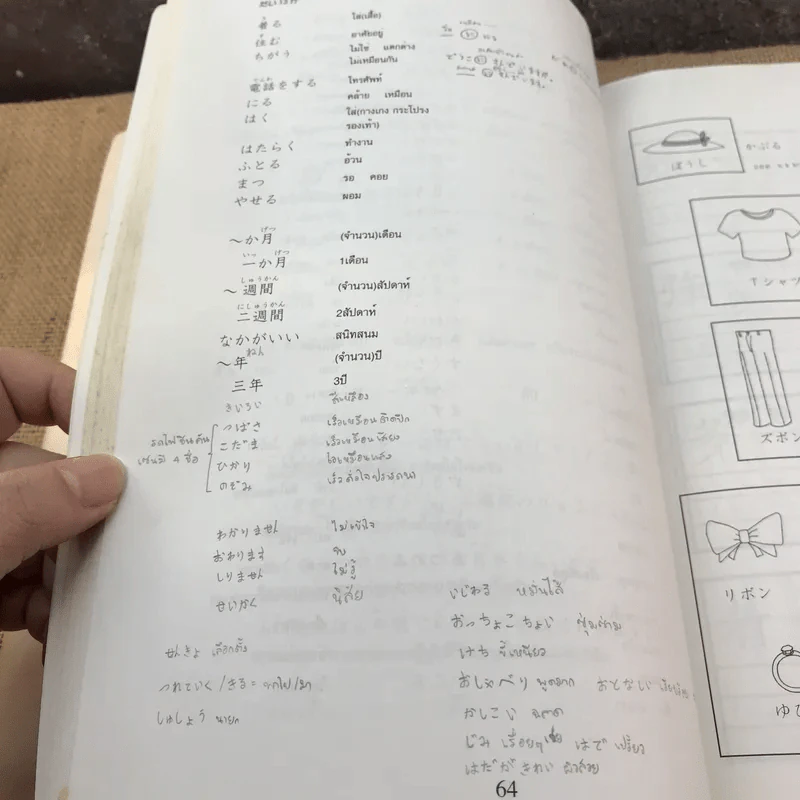 着る ใส่(เสื้อ)
住む อาศัยอยู่
ちがう ไม่ใช่ แตกต่าง
ไม่เหมือนกัน
でんわ
電話をする โทรศัพท์
にる คล้าย เหมือน
はく ใส่(กางเกง กระโปรง
รองเท้า)
はたらく ทำงาน
ふとる อ้วน
まつ รอ คอย
やせる ผอม
げつ
～か月 (จำนวน)เดือน
いっ げつ
一か月 1เดือน
しゅうかん
～週間 (จำนวน)สัปดาห์
にしゅうかん
二週間 2สัปดาห์
なかがいい สนิทสนม
ねん
～年 (จำนวน)ปี
三年 3ปี
きいろい สีเหลือง
つばさ เร็วเหมือนปีก
こだま เร็วเหมือนเสียง
ひかり ไวเหมือนแสง
のぞみ เร็วดั่งใจปรารถนา
รถไฟชินคัน
เซนมี 4 ชื่อ
わかりません ไม่เข้าใจ
おわります จบ
しりません ไม่รู้
せいかく นิสัย
いじわる หมั่นไส้
おっちょこちょい ซุ่มซ่าม
せんきょ เลือกตั้ง
けち ขี้เหนียว
つれていく/きる = พาไป/มา
おしゃべり พูดมาก おとなしい
しゅしょう นายก
かしこい ฉลาด
じみ เรื่อยๆ はで เปรี้ยว
はだがきれい ผิวสวย
64
ぼうし かぶる
Tシャツ
ズボン
リボン
ゆび